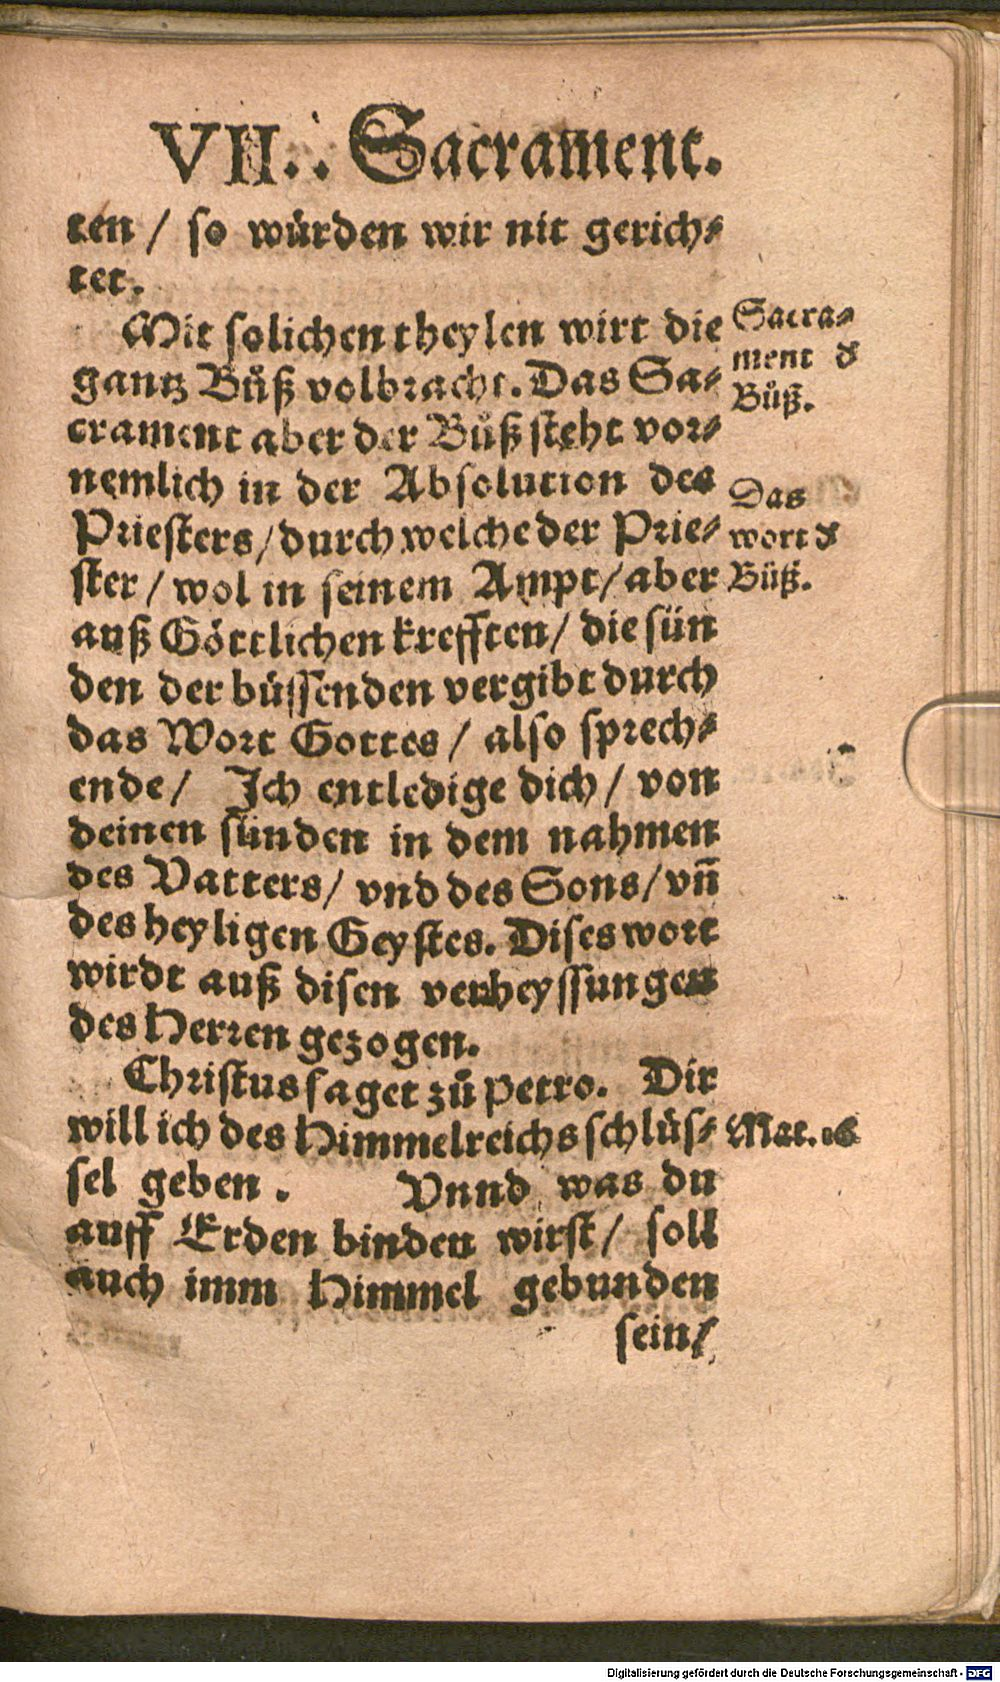 VII. Sacrament.
ten / so würden wir nit gerich⸗
tet.
Mit solichen theylen wirt die
gantz Bůß volbracht. Das Sa⸗
crament aber der Bůß steht vor⸗
nemlich in der Absolution des
Priesters / durch welche der Prie⸗
ster / wol in seinem Ampt / aber
auß Göttlichen krefften / die sün
den der büssenden vergibt durch
das Wort Gottes / also sprech⸗
ende / Ich entledige dich / von
deinen sünden in dem nahmen
des Vatters / vnd des Sons / vñ
des heyligen Geystes. Dises wort
wirdt auß disen verheyssungen
des Herren gezogen.
Christus saget zů Petro. Dir
will ich des Himmelreichs schlüs⸗
sel geben. Vnnd was du
auff Erden binden wirst / soll
auch imm Himmel gebunden
sein /
Sacra⸗
ment d̕
Bůß.
Das
wort d̕
Bůß.
Mat. 16
Digitalisierung gefördert durch die Deutsche Forschungsgemeinschaft - DFG